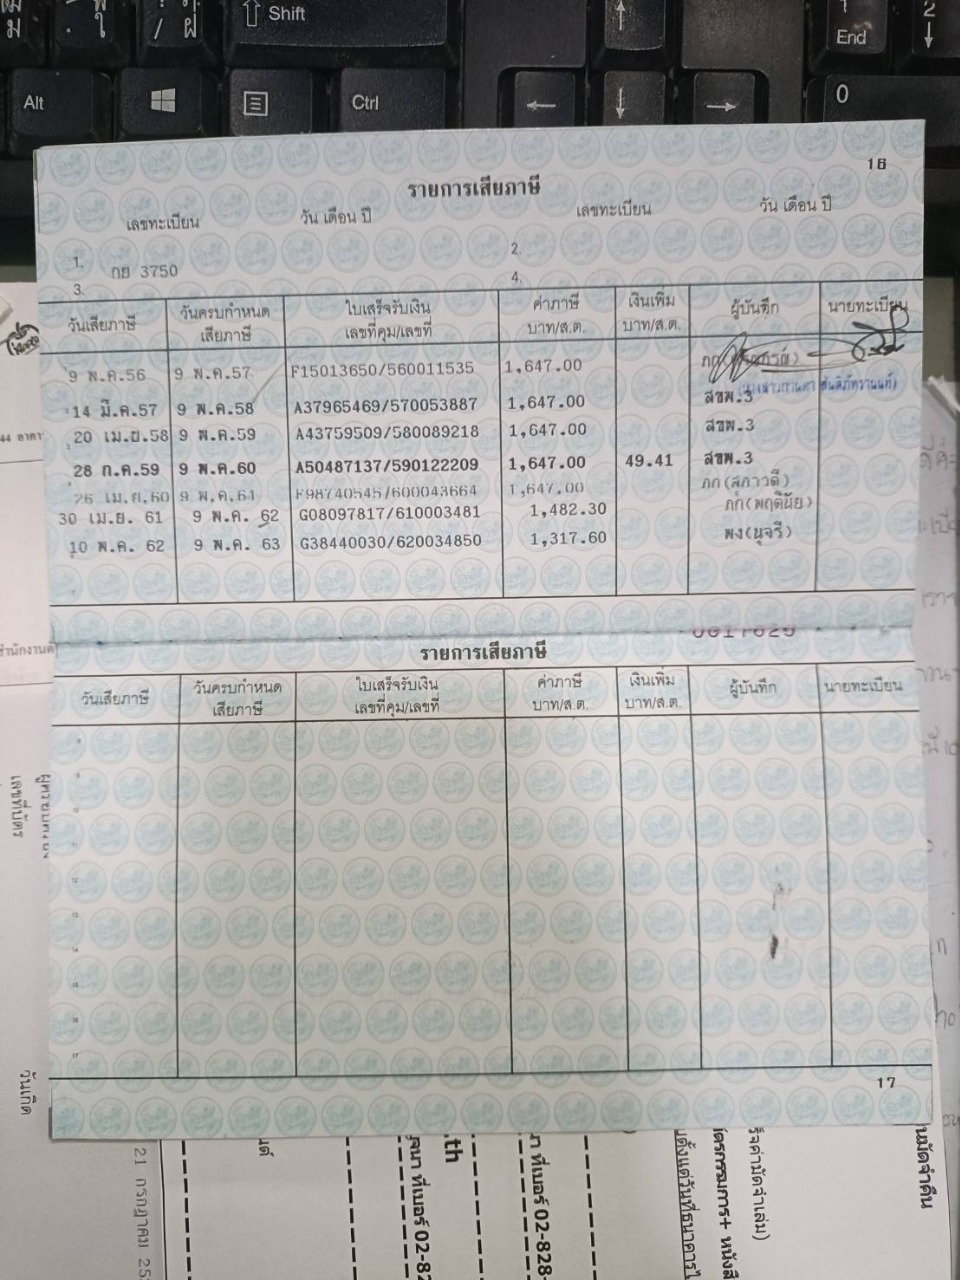 Shift
End
2
Alt
Ctrl
0
16
รายการเสียภาษี
เลขทะเบียน วัน เดือน ปี เลขทะเบียน วัน เดือน ปี
1. กย 3750 2.
3. 4.
วันเสียภาษี วันครบกำหนดเสียภาษี ใบเสร็จรับเงิน เลขที่คุม/เลขที่ ค่าภาษี บาท/ส.ต. เงินเพิ่ม บาท/ส.ต. ผู้บันทึก นายทะเบียน
9 พ.ค.56 9 พ.ค.57 F15013650/560011535 1,647.00
14 มี.ค.57 9 พ.ค.58 A37965469/570053887 1,647.00 สขพ.3
20 เม.ย.58 9 พ.ค.59 A43759509/580089218 1,647.00 สขพ.3
28 ก.ค.59 9 พ.ค.60 A50487137/590122209 1,647.00 49.41 สขพ.3
26 เม.ย.60 9 พ.ค.61 F98740545/600043664 1,647.00 ภก(สุภาวดี)
30 เม.ย. 61 9 พ.ค. 62 G08097817/610003481 1,482.30 ภก(พฤตินัย)
10 พ.ค. 62 9 พ.ค. 63 G38440030/620034850 1,317.60 พง(นุจรี)
รายการเสียภาษี
วันเสียภาษี วันครบกำหนดเสียภาษี ใบเสร็จรับเงิน เลขที่คุม/เลขที่ ค่าภาษี บาท/ส.ต. เงินเพิ่ม บาท/ส.ต. ผู้บันทึก นายทะเบียน
17
เลขที่บัตร
วันเกิด
21 กรกฎาคม
ที่เบอร์ 02-828-